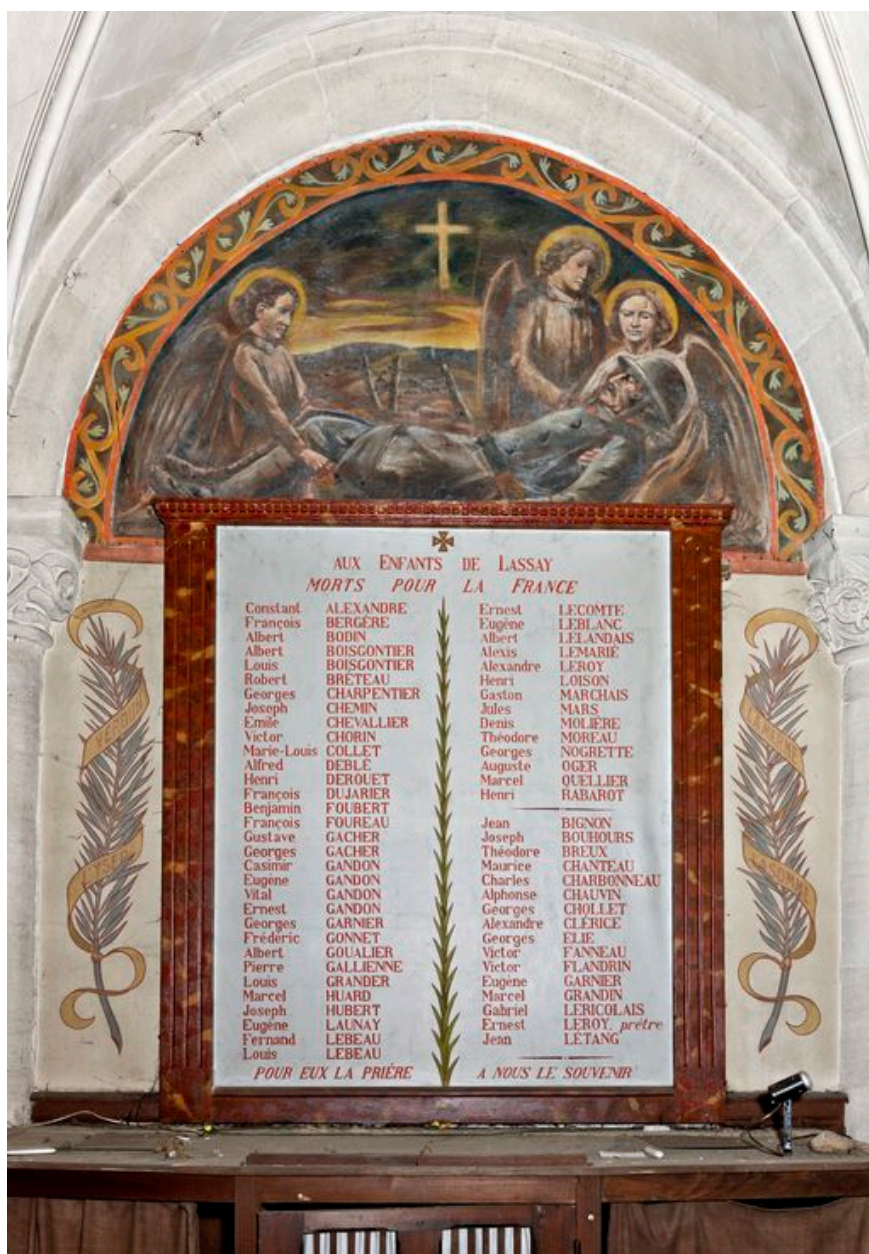 AUX ENFANTS DE LASSAY
MORTS POUR LA FRANCE
Constant ALEXANDRE
François BERGÈRE
Albert BODIN
Albert BOISGONTIER
Louis BOISGONTIER
Robert BRÉTEAU
Georges CHARPENTIER
Joseph CHEMIN
Emile CHEVALLIER
Victor CHORIN
Marie-Louis COLLET
Alfred DEBLÉ
Henri DEROUET
François DUJARIER
Benjamin FOUBERT
François FOUREAU
Gustave GACHER
Georges GACHER
Casimir GANDON
Eugène GANDON
Vital GANDON
Ernest GANDON
Georges GARNIER
Frédéric GONNET
Albert GOUALIER
Pierre GALLIENNE
Louis GRANDER
Marcel HUARD
Joseph HUBERT
Eugène LAUNAY
Fernand LEBEAU
Louis LEBEAU
Ernest LECOMTE
Eugène LEBLANC
Albert LELANDAIS
Alexis LEMARIÉ
Alexandre LEROY
Henri LOISON
Gaston MARCHAIS
Jules MARS
Denis MOLIÈRE
Théodore MOREAU
Georges NOGRETTE
Auguste OGER
Marcel QUELLIER
Henri RABAROT
Jean BIGNON
Joseph BOUHOURS
Théodore BREUX
Maurice CHANTEAU
Charles CHARBONNEAU
Alphonse CHAUVIN
Georges CHOLLET
Alexandre CLÉRICE
Georges ELIE
Victor FANNEAU
Victor FLANDRIN
Eugène GARNIER
Marcel GRANDIN
Gabriel LERICOLAIS
Ernest LEROY, prêtre
Jean LÉTANG
POUR EUX LA PRIÈRE A NOUS LE SOUVENIR
VERDUN
L'YSER
LA MARNE
LA SOMME